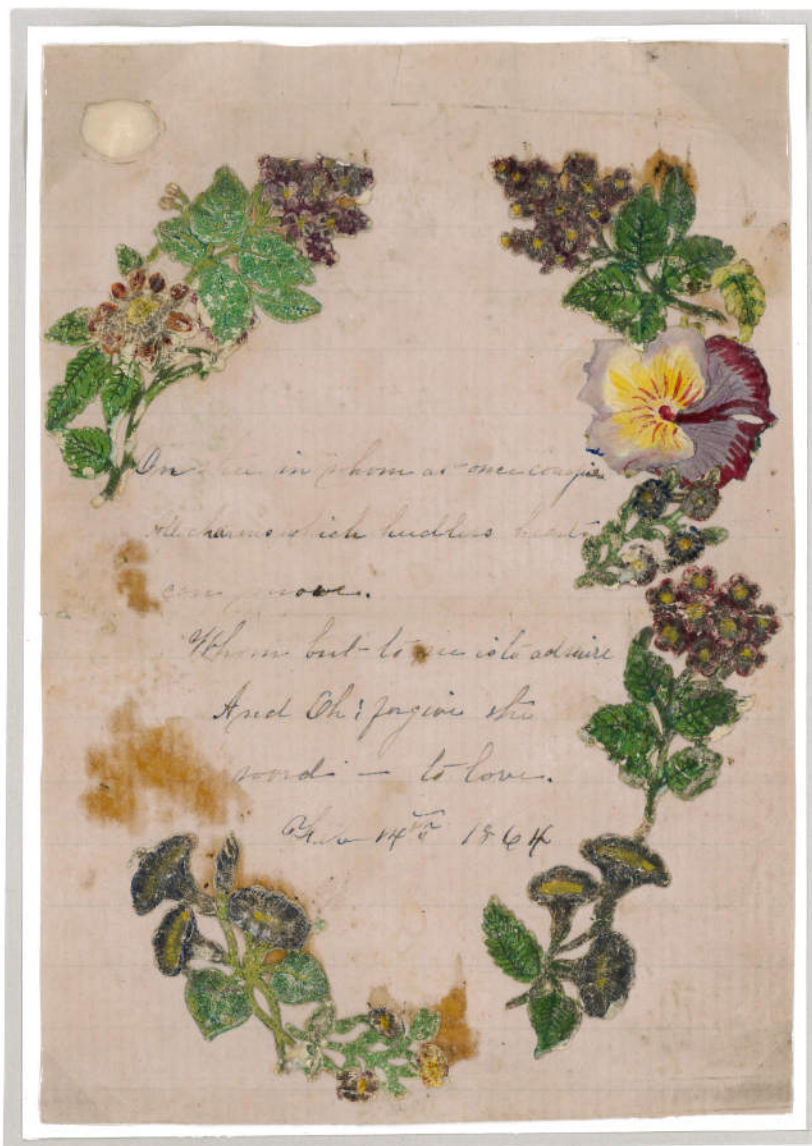 On thee in whom at once conspire
All charms which heedless hearts
can move.
Whom but to see is to admire
And Oh! forgive the
word — to love.
Feb 14th 1864